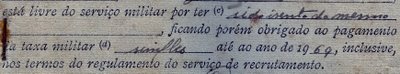 está livre do serviço militar por ter (c) sido isento do mesmo
, ficando porém obrigado ao pagamento
da taxa militar (d) simples até ao ano de 1969, inclusive,
nos termos do regulamento do serviço de recrutamento.